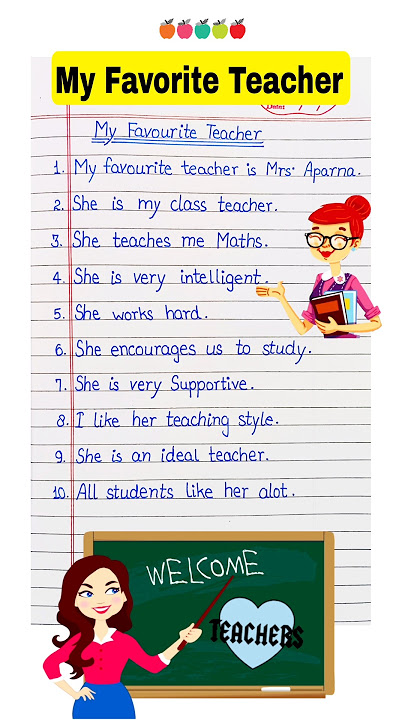 My Favorite Teacher
Date:
My Favourite Teacher
1. My favourite teacher is Mrs. Aparna.
2. She is my class teacher.
3. She teaches me Maths.
4. She is very intelligent.
5. She works hard.
6. She encourages us to study.
7. She is very Supportive.
8. I like her teaching style.
9. She is an ideal teacher.
10. All students like her alot.
WELCOME
TEACHERS